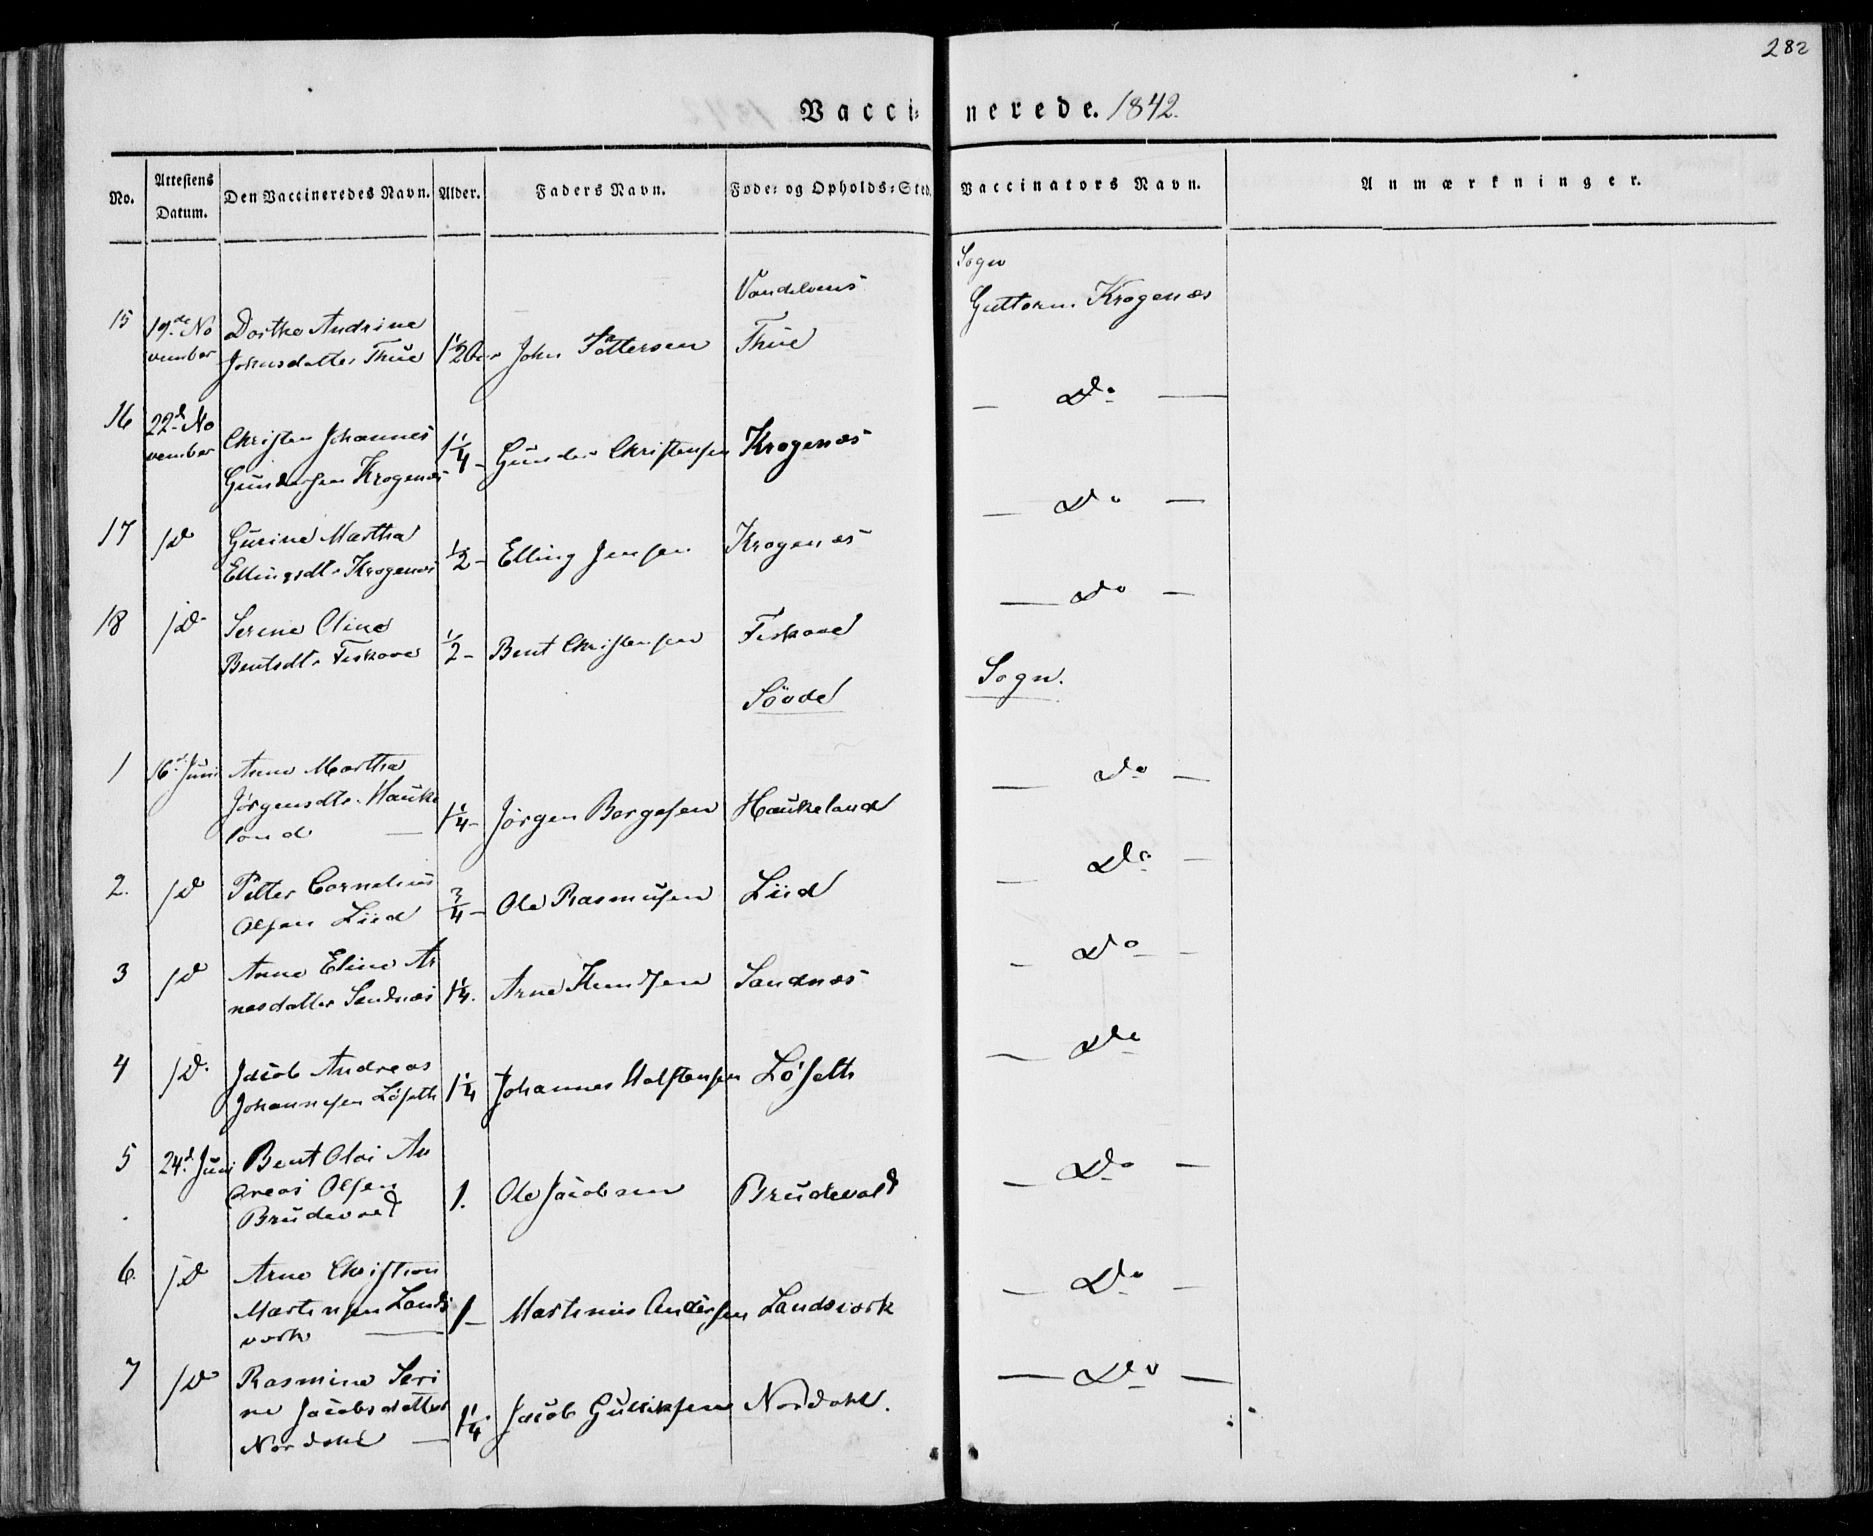 282
Vacci= nerede. 1842.
No. Attestens Datum. Den Vaccineredes Navn. Alder. Faders Navn. Føde= og Opholds=Sted. Vaccinators Navn. Anmærkninger.
Vandelvens Sogn
15 19de No Dorthe Andrine Guttorm Krogenæs
vember Johnsdatter Thue 1½ John Pettersen Thue
16 22d No Christen Johannes — Do —
vember Gundersen Krogenæs 1¼ – Gunder Christensen Krogenæs
17 jd Gurine Martha — Do —
Ellingsdtr Krogenæs ½ – Elling Jensen Krogenæs
18 jd Serine Oline — Do —
Bentsdtr Feskaae ½ – Bent Christensen Feskaae
Sövde Sogn.
1 16d Juni Anne Martha — Do —
Jörgensdtr Hauke
land — 1¼ – Jörgen Borgesen Haukeland
2. jd Petter Cornelius — Do —
Olsen Liid ¾ – Ole Rasmusen Liid
3 jd Anne Eline Ar — Do —
nesdatter Sandnæs 1¼. Arne Knudsen Sandnæs
4 jd Jacob Andreas — Do
Johannesen Löseth 1¼ Johannes Halstensen Löseth
5 24d Juni Bent Olai An — Do —
dreas Olsen
Brudevold 1. Ole Jacobsen Brudevold
6. jd Arne Christian — Do —
Martinsen Lands
værk — 1 – Martinus Andersen Landsværk
7 jd Rasmine Seri — Do —
ne Jacobsdatter
Nordahl — 1¼ Jacob Gulliksen Nordahl.